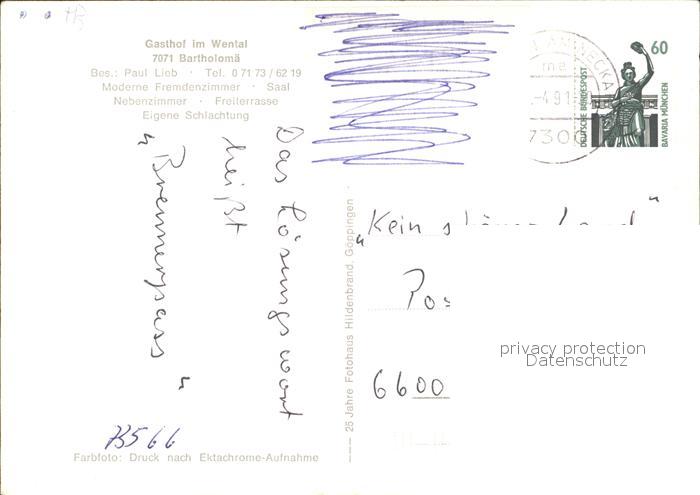 Gasthof im Wental
7071 Bartholomä
Bes.: Paul Lieb · Tel. 0 71 73 / 62 19
Moderne Fremdenzimmer · Saal
Nebenzimmer · Freiterrasse
Eigene Schlachtung
Das Lösungswort
heißt
„Brennerpass"
B566
Farbfoto: Druck nach Ektachrome-Aufnahme
25 Jahre Fotohaus Hildenbrand, Göppingen
AM NECKA
-4.91
730
60
DEUTSCHE BUNDESPOST
BAVARIA MÜNCHEN
„Kein
6600
privacy protection
Datenschutz